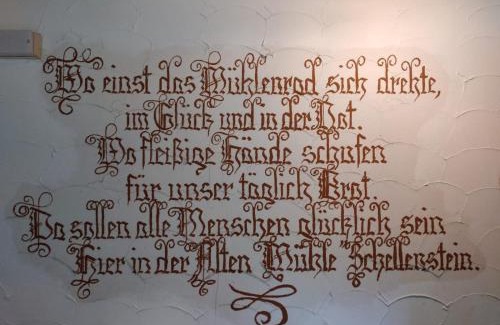 Wo einst das Mühlenrad sich drehte,
im Glück und in der Not.
Wo fleißige Hände schufen
für unser täglich Brot
Da sollen alle Menschen glücklich sein
hier in der Alten Mühle "Schellenstein.